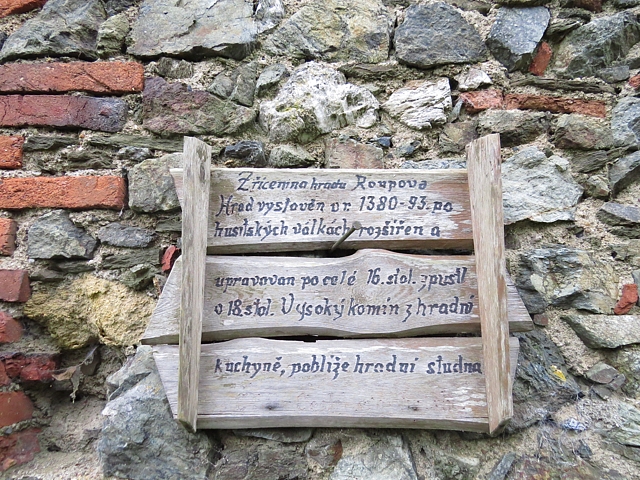 Zřícemna hradu Roupova
Hrad vystověn v r. 1380-93. po
husitských válkách rozšířen a
upravavan po celé 16. stol. zpustl
v 18. stol. Vysoký komín z hradní
kuchyně, poblíže hradní studna